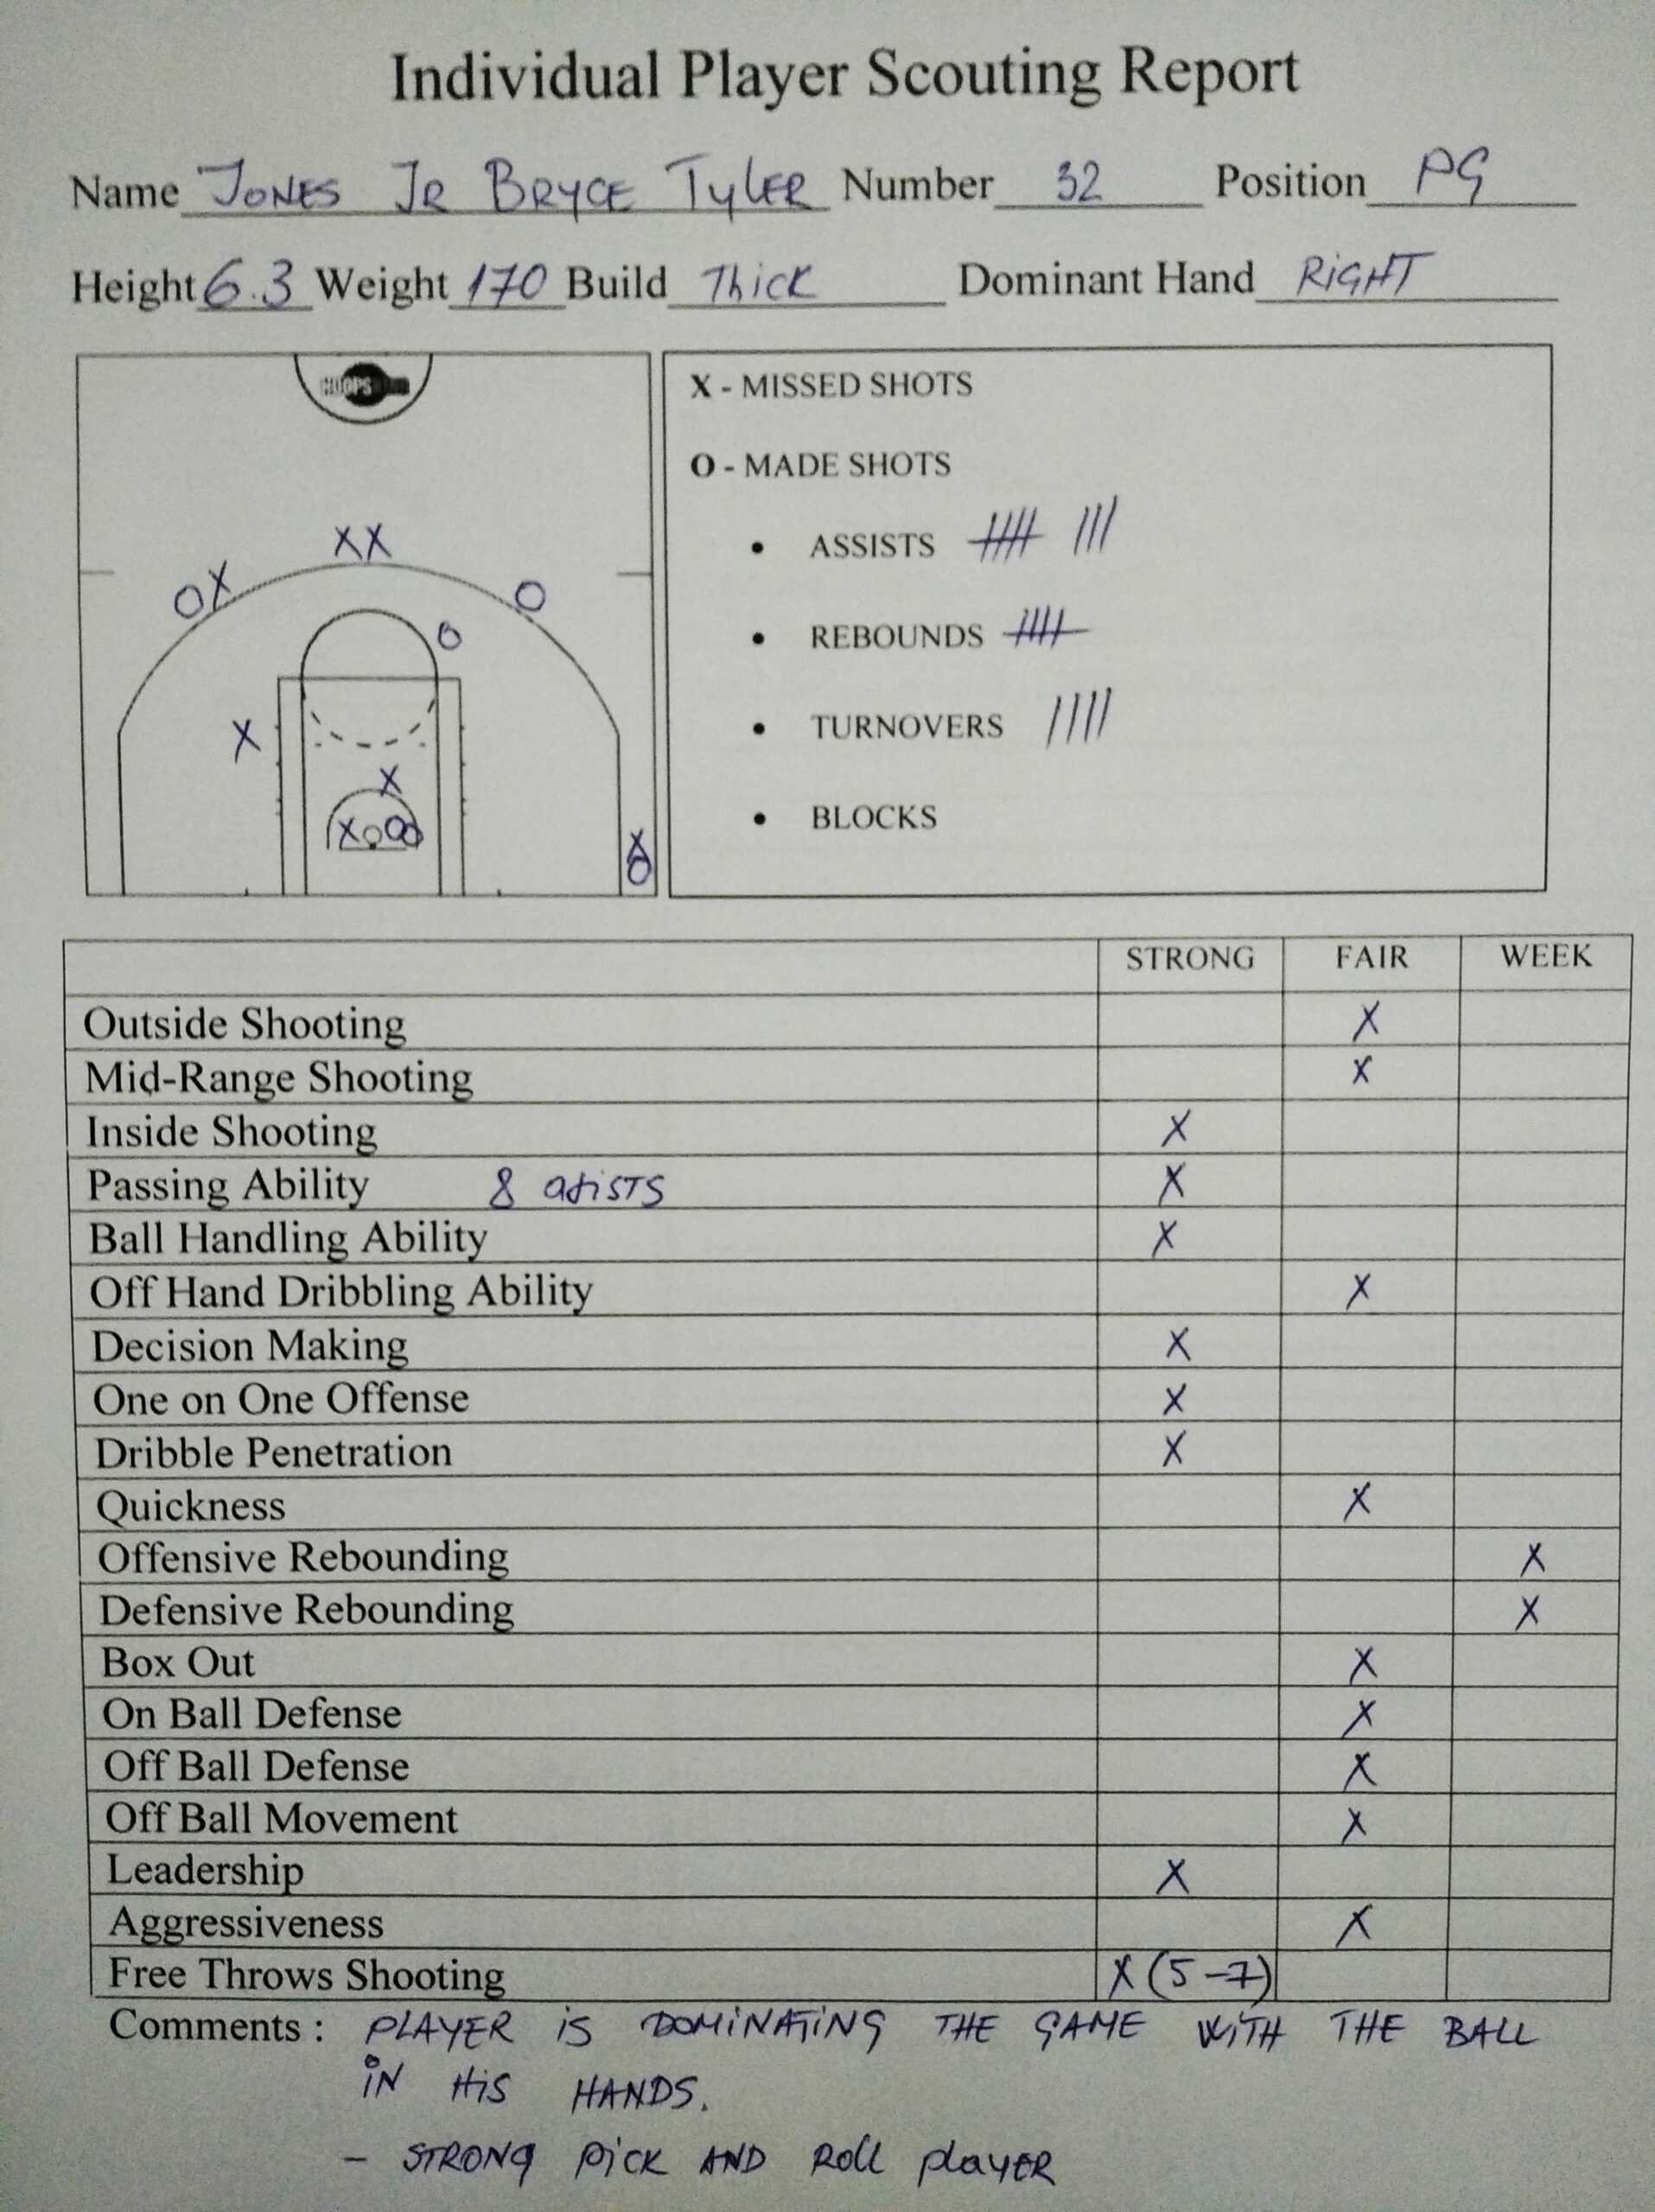 Individual Player Scouting Report
Name JONES JR BRYCE TyLER Number 32 Position PG
Height 6.3 Weight 170 Build Thick Dominant Hand RiGHT
HOOPS
X - MISSED SHOTS
O - MADE SHOTS
XX
OX O
O
X
X
XOO
X
O
• ASSISTS
• REBOUNDS
• TURNOVERS
• BLOCKS
STRONG FAIR WEEK
Outside Shooting X
Mid-Range Shooting X
Inside Shooting X
Passing Ability 8 asists X
Ball Handling Ability X
Off Hand Dribbling Ability X
Decision Making X
One on One Offense X
Dribble Penetration X
Quickness X
Offensive Rebounding X
Defensive Rebounding X
Box Out X
On Ball Defense X
Off Ball Defense X
Off Ball Movement X
Leadership X
Aggressiveness X
Free Throws Shooting X (5-7)
Comments : PLAYER iS DOMiNATiNG THE GAME WiTH THE BALL
iN HiS HANDS.
- STRONG PiCK AND Roll playER